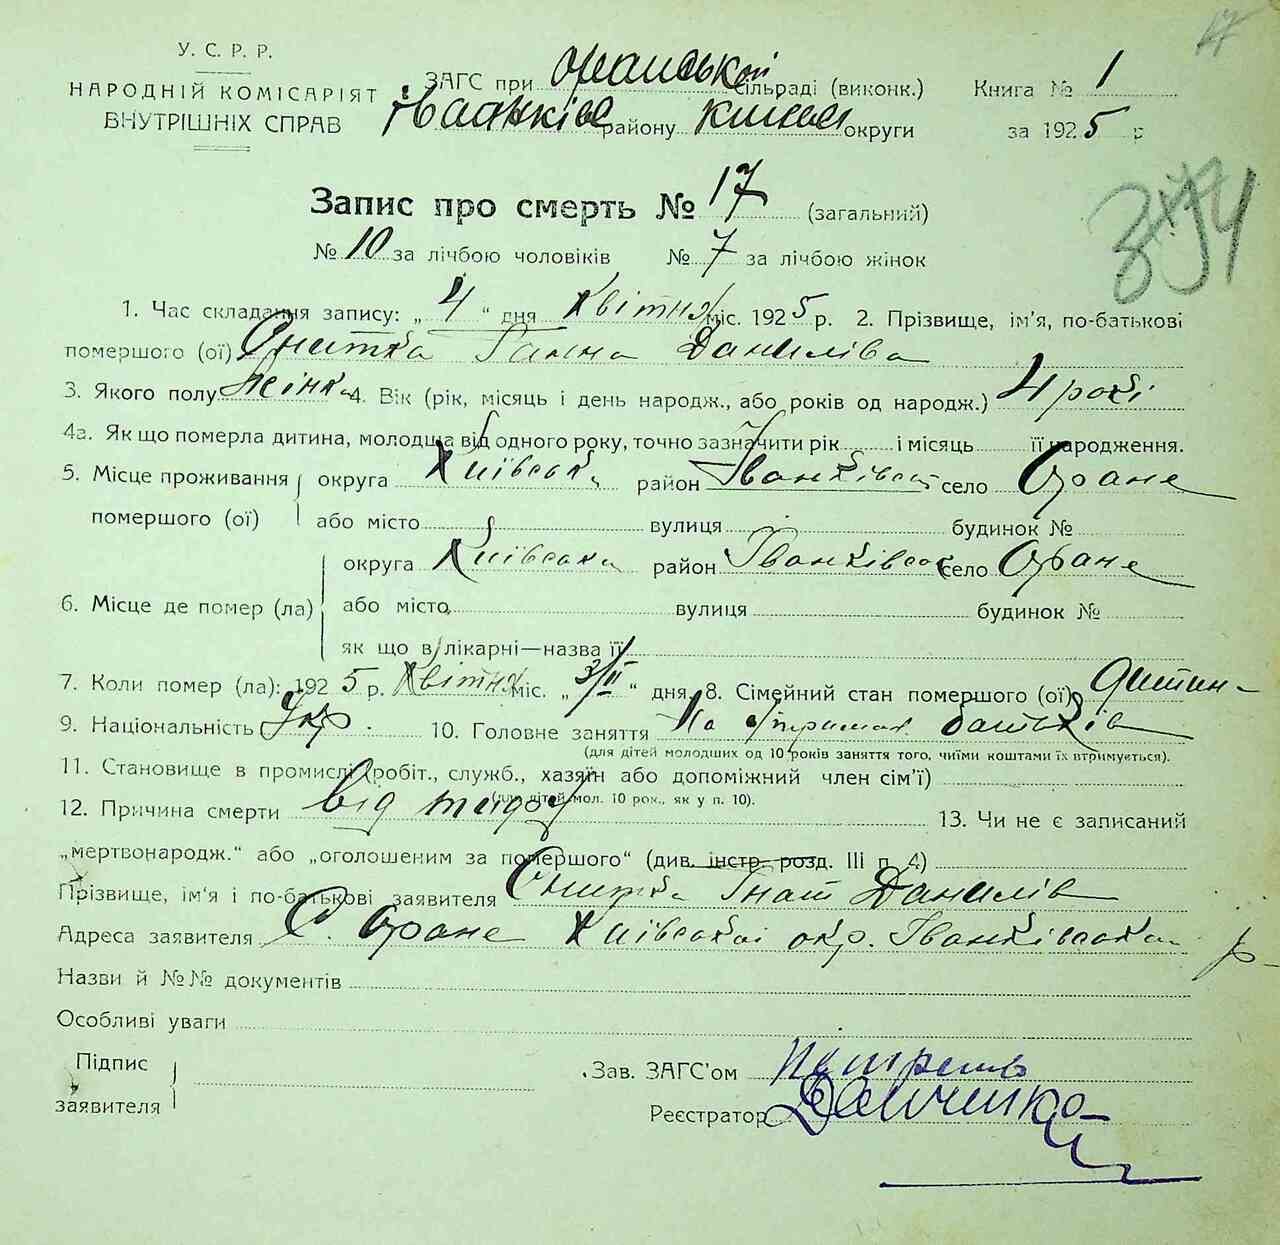 17
У. С. Р. Р.
НАРОДНІЙ КОМІСАРІЯТ
ВНУТРІШНІХ СПРАВ
ЗАГС при Оранській сільраді (виконк.)
району округи
Книга № 1
за 1925 р
Запис про смерть № 17 (загальний)
№ 10 за лічбою чоловіків № 7 за лічбою жінок
1. Час складання запису: „ 4 “ дня Квітня міс. 1925 р. 2. Прізвище, ім’я, по-батькові
помершого (ої) Ганна Данилівна
3. Якого полу Жінка 4. Вік (рік, місяць і день народж., або років од народж.) 4 роки
4а. Як що померла дитина, молодша від одного року, точно зазначити рік і місяць її народження.
5. Місце проживання помершого (ої) округа Київськ район Іванківськ село Оране
або місто вулиця будинок №
6. Місце де помер (ла) округа Київська район Іванківськ село Оране
або місто вулиця будинок №
як що в лікарні—назва її
7. Коли помер (ла): 1925 р. Квітня міс. „ 3/II “ дня. 8. Сімейний стан помершого (ої) дитин-
9. Національність Укр. 10. Головне заняття На батьків
(для дітей молодших од 10 років заняття того, чиїми коштами їх втримується).
11. Становище в промислі (робіт., служб., хазяїн або допоміжний член сім’ї)
(для дітей мол. 10 рок., як у п. 10).
12. Причина смерти Від 13. Чи не є записаний
„мертвонародж.“ або „оголошеним за помершого“ (див. інстр. розд. III п. 4)
Прізвище, ім‘я і по-батькові заявителя Гнат Данилів
Адреса заявителя С. Оране Київської окр. Іванківська р-
Назви й №№ документів
Особливі уваги
Підпис заявителя
Зав. ЗАГС’ом
Реєстратор